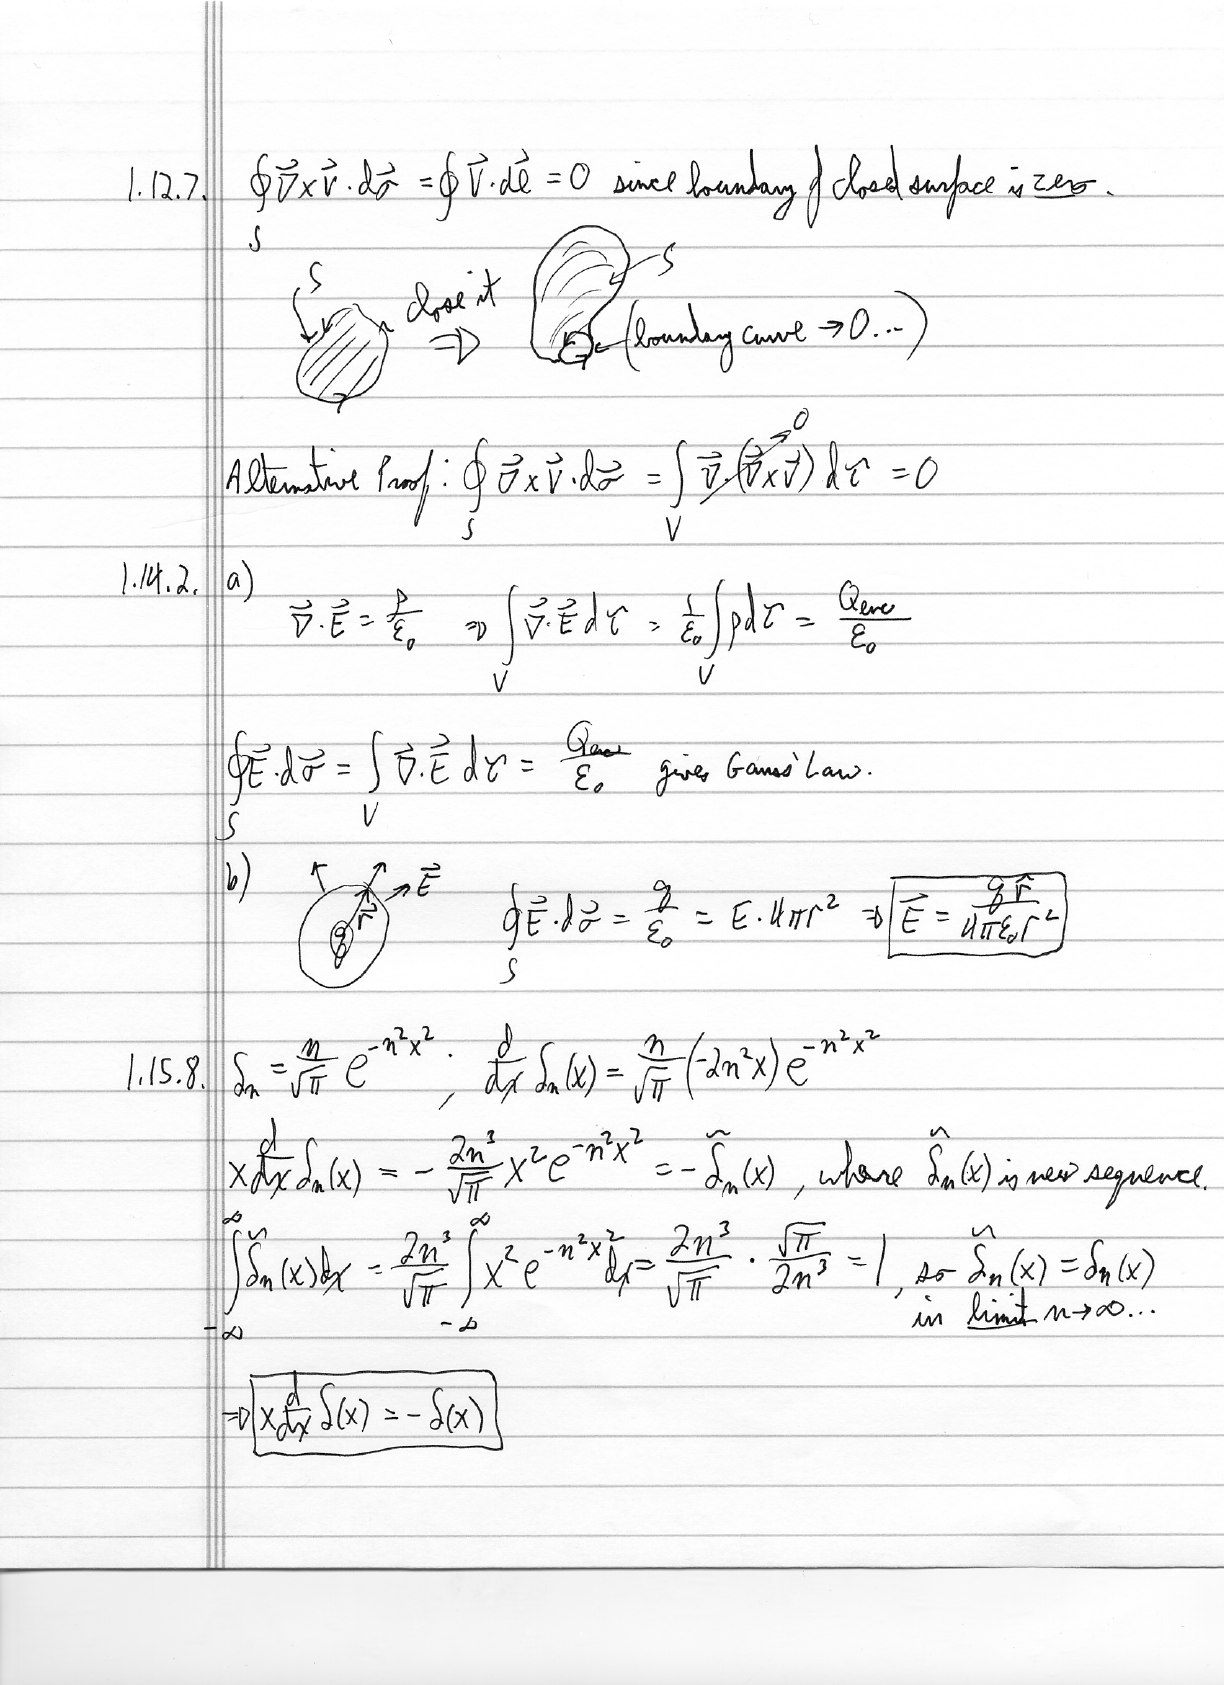 1.12.7. ∮_S ∇⃗×V⃗·dσ⃗ = ∮ V⃗·dℓ⃗ = 0 since boundary of closed surface is zero.
S close it ⇒ S (boundary curve → 0...)
Alternative Proof: ∮_S ∇⃗×V⃗·dσ⃗ = ∫_V ∇⃗·(∇⃗×V⃗) dτ = 0
0
1.14.2. a)
∇⃗·E⃗ = ρ/ε₀ ⇒ ∫_V ∇⃗·E⃗ dτ = 1/ε₀ ∫_V ρdτ = Qenc/ε₀
∮_S E⃗·dσ⃗ = ∫_V ∇⃗·E⃗ dτ = Qenc/ε₀ gives Gauss' Law.
b) q r⃗ E⃗ ∮_S E⃗·dσ⃗ = q/ε₀ = E·4πr² ⇒ E⃗ = q r̂/4πε₀r²
1.15.8. δₙ = n/√π e^(-n²x²), d/dx δₙ(x) = n/√π (-2n²x) e^(-n²x²)
x d/dx δₙ(x) = - 2n³/√π x² e^(-n²x²) = - δ̃ₙ(x), where δ̃ₙ(x) is new sequence.
∫_{-∞}^{∞} δ̃ₙ(x)dx = 2n³/√π ∫_{-∞}^{∞} x² e^(-n²x²) dx = 2n³/√π · √π/2n³ = 1, so δ̃ₙ(x) = δₙ(x)
in limit n→∞...
⇒ x d/dx δ(x) = - δ(x)